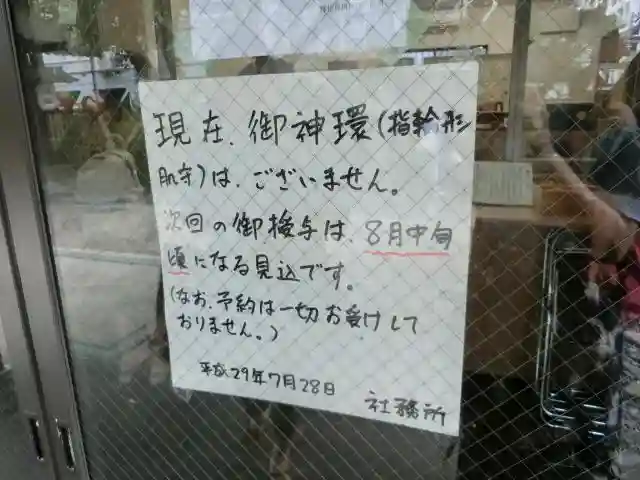 現在、御神環(指輪形
肌守)は、ございません。
次回の御授与は、8月中旬
頃になる見込です。
(なお、予約は一切お受けして
おりません。)
平成29年7月28日
社務所